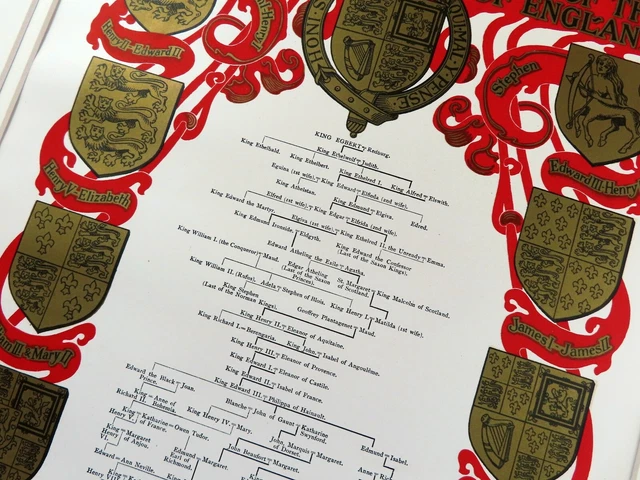 OF THE
OF ENGLAND
Henry II-Edward II
Henry II
HONI S
QUI MAL Y PENSE
Stephen
Henry V-Elizabeth
Edward III-Henry
James I-James II
William III & Mary II
KING EGBERT Redburg.
King Ethelwulf Judith.
King Ethelbald. King Ethelbert. King Ethelred I. King Alfred Elswith.
Eguina (1st wife). King Edward Elfleda (2nd wife).
King Athelstan. King Edmund Elgiva. Edred.
Elfled (1st wife). King Edgar Elfrida (2nd wife).
King Edward the Martyr. Elgiva (1st wife). King Ethelred II. the Unready Emma.
King Edmund Ironside. Eldgyth. King Edward the Confessor
(Last of the Saxon Kings).
Edward Atheling the Exile Agatha.
King William I. (the Conqueror) Maud. Edgar Atheling St. Margaret King Malcolm of Scotland.
(Last of the Saxon of Scotland.
Princes).
King William II. (Rufus). Adela Stephen of Blois. King Henry I. Matilda (1st wife).
King Stephen
(Last of the Norman Kings). Geoffrey Plantagenet Maud.
King Henry II. Eleanor of Aquitaine.
King Richard I. Berengaria. King John. Isabel of Angoulême.
King Henry III. Eleanor of Provence.
King Edward I. Eleanor of Castile.
King Edward II. Isabel of France.
King Edward III. Philippa of Hainault.
Edward the Black Joan.
Prince. Blanche John of Gaunt Katharine Edmund Isabel.
Swynford.
King Anne of
Richard II. Bohemia. King Henry IV. Mary.
King Katharine Owen Tudor. John, Marquis Margaret. Anne Ri
Henry V. of France. of Dorset.
King Margaret Edmund Margaret. John Beaufort Margaret.
Henry of Anjou. Earl of
VI. Richmond.
Edward Ann Neville.
Henry VII